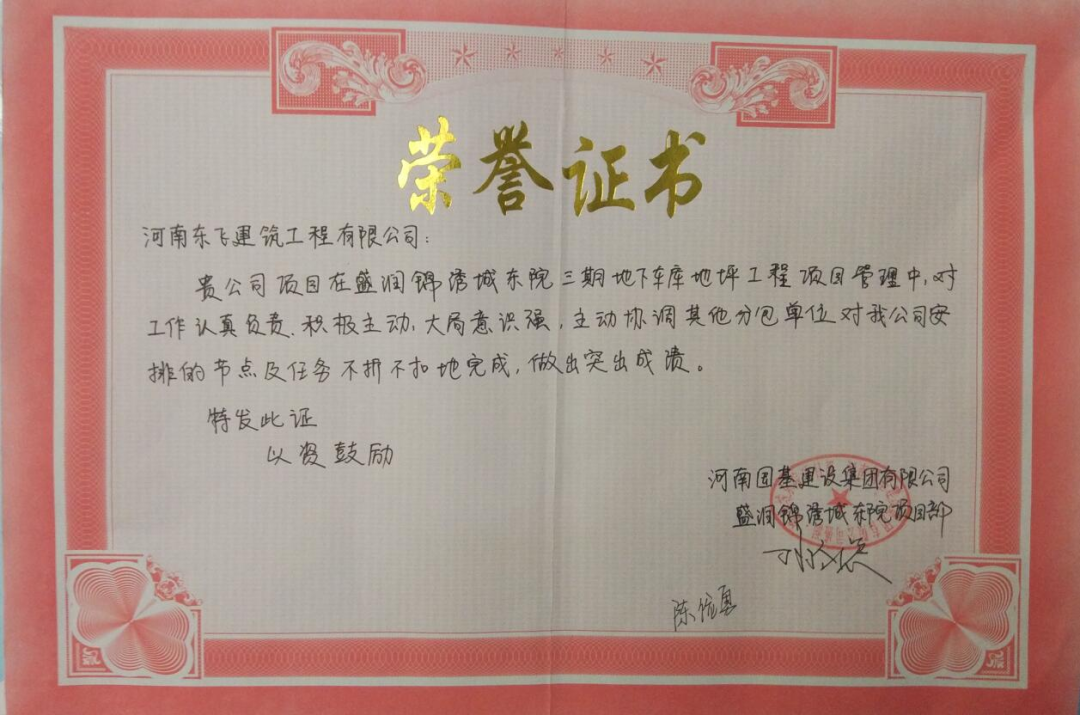 荣誉证书
河南东飞建筑工程有限公司：
贵公司项目在盛润锦绣城东院三期地下车库地坪工程项目管理中,对
工作认真负责、积极主动,大局意识强,主动协调其他分包单位对我公司安
排的节点及任务不折不扣地完成,做出突出成溃。
特发此证
以资鼓励
河南国基建设集团有限公司
盛润锦绣城东院项目部